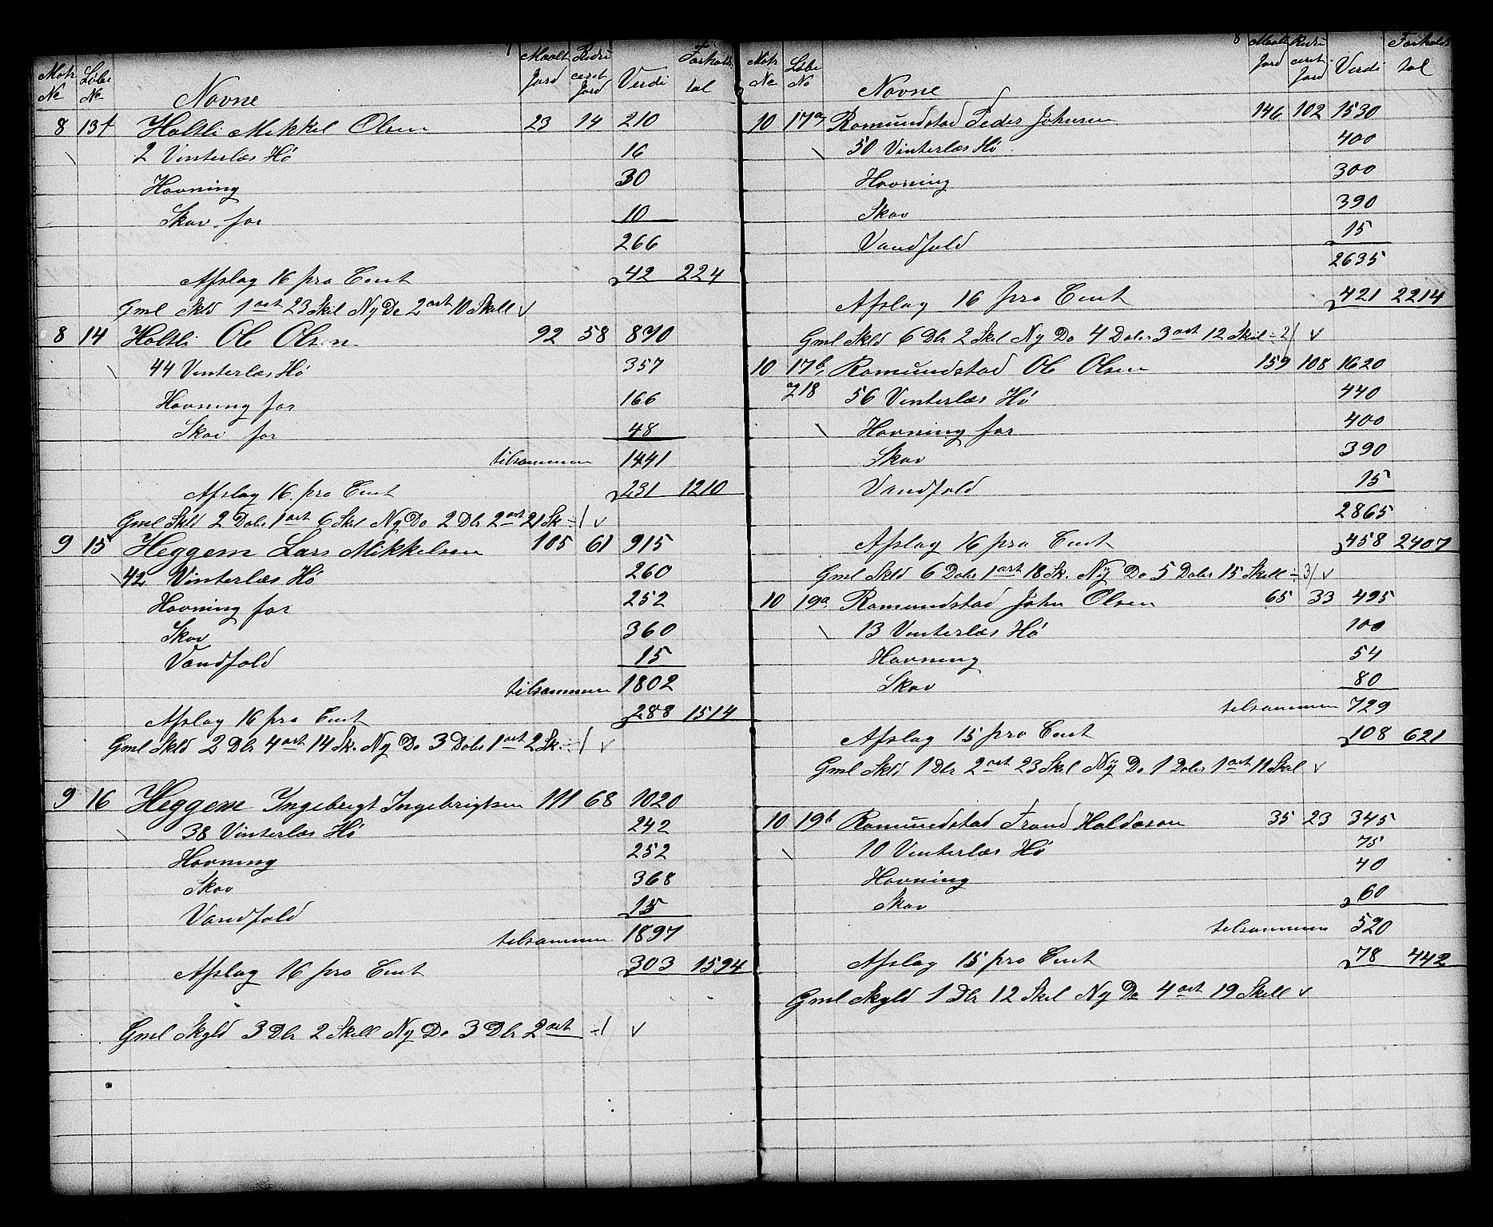 7
Matr No Løbe No Navne Maalt Jord Reduceret Jord Verdi Forholds tal
8 13f Holtli Mikkel Olsen 23 14 210
2 Vinterlæs Hø 16
Havning 30
Skov for 10
266
Afslag 16 pro Cent 42 224
Gml Skld 1 ort 23 Skil Ny Do 2 ort 10 Skill √
8 14 Holtli Ole Olsen 92 58 870
44 Vinterlæs Hø 357
Havning for 166
Skov for 48
tilsammen 1441
Afslag 16 pro Cent 231 1210
Gml Skld 2 Daler 1 ort 6 Skil Ny Do 2 Dlr 2 ort 21 Sk ÷1 √
9 15 Heggem Lars Mikkelsen 105 61 915
42 Vinterlæs Hø 260
Havning for 252
Skov 360
Vandfald 15
tilsammen 1802
Afslag 16 pro Cent 288 1514
Gml Skld 2 Dlr 4 ort 14 Sk. Ny Do 3 Daler 1 ort 2 Sk. ÷1 √
9 16 Heggem Ingebrigt Ingebrigtsen 111 68 1020
38 Vinterlæs Hø 242
Havning 252
Skov 368
Vandfald 15
tilsammen 1897
Afslag 16 pro Cent 303 1594
Gml Skyld 3 Dlr 2 Skill Ny Do 3 Dlr 2 ort ÷1 √
8
Matr No Løbe No Navne Maalt Jord Reducert Jord Verdi Forholds tal
10 17a Romundstad Peder Johnsen 146 102 1530
50 Vinterlæs Hø 400
Havning 300
Skov 390
Vandfald 15
2635
Afslag 16 pro Cent 421 2214
Gml Skld 6 Dlr 2 Skil Ny Do 4 Daler 3 ort 12 Skil ÷2 √
10 17b Romundstad Ole Olsen 159 108 1620
718 56 Vinterlæs Hø 440
Havning for 400
Skov 390
Vandfald 15
2865
Afslag 16 pro Cent 458 2407
Gml Skld 6 Daler 1 ort 18 Sk. Ny Do 5 Daler 15 Skill ÷3 √
10 19a Romundstad John Olsen 65 33 495
13 Vinterlæs Hø 100
Havning 54
Skov 80
tilsammen 729
Afslag 15 pro Cent 108 621
Gml Skld 1 Dlr 2 ort 23 Skil Ny Do 1 Daler 1 ort 11 Skil √
10 19b Romundstad Trond Haldosen 35 23 345
10 Vinterlæs Hø 75
Havning 40
Skov 60
tilsammen 520
Afslag 15 pro Cent 78 442
Gml Skyld 1 Dlr 12 Skil Ny Do 4 ort 19 Skill √